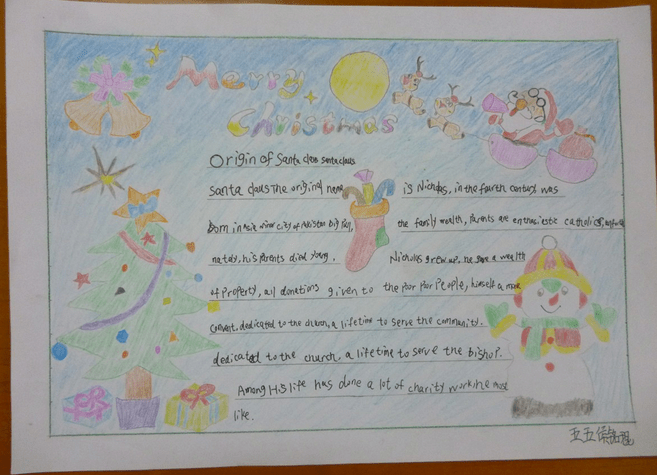 Merry
Christmas
Origin of Santa claus santa claus
santa claus The original name is Nicholas, in the fourth century was
Born in asia minor city of big the family wealth, parents are enthusiastic catholics,
nately, his parents died young. Nicholas grew up, he gave a wealth
of property, all donations given to the poor poor People, himself a
convent, dedicated to the church, a lifetime to serve the community.
dedicated to the church, a lifetime to serve the bishop.
Among His life has done a lot of charity work, he most
like.
五五